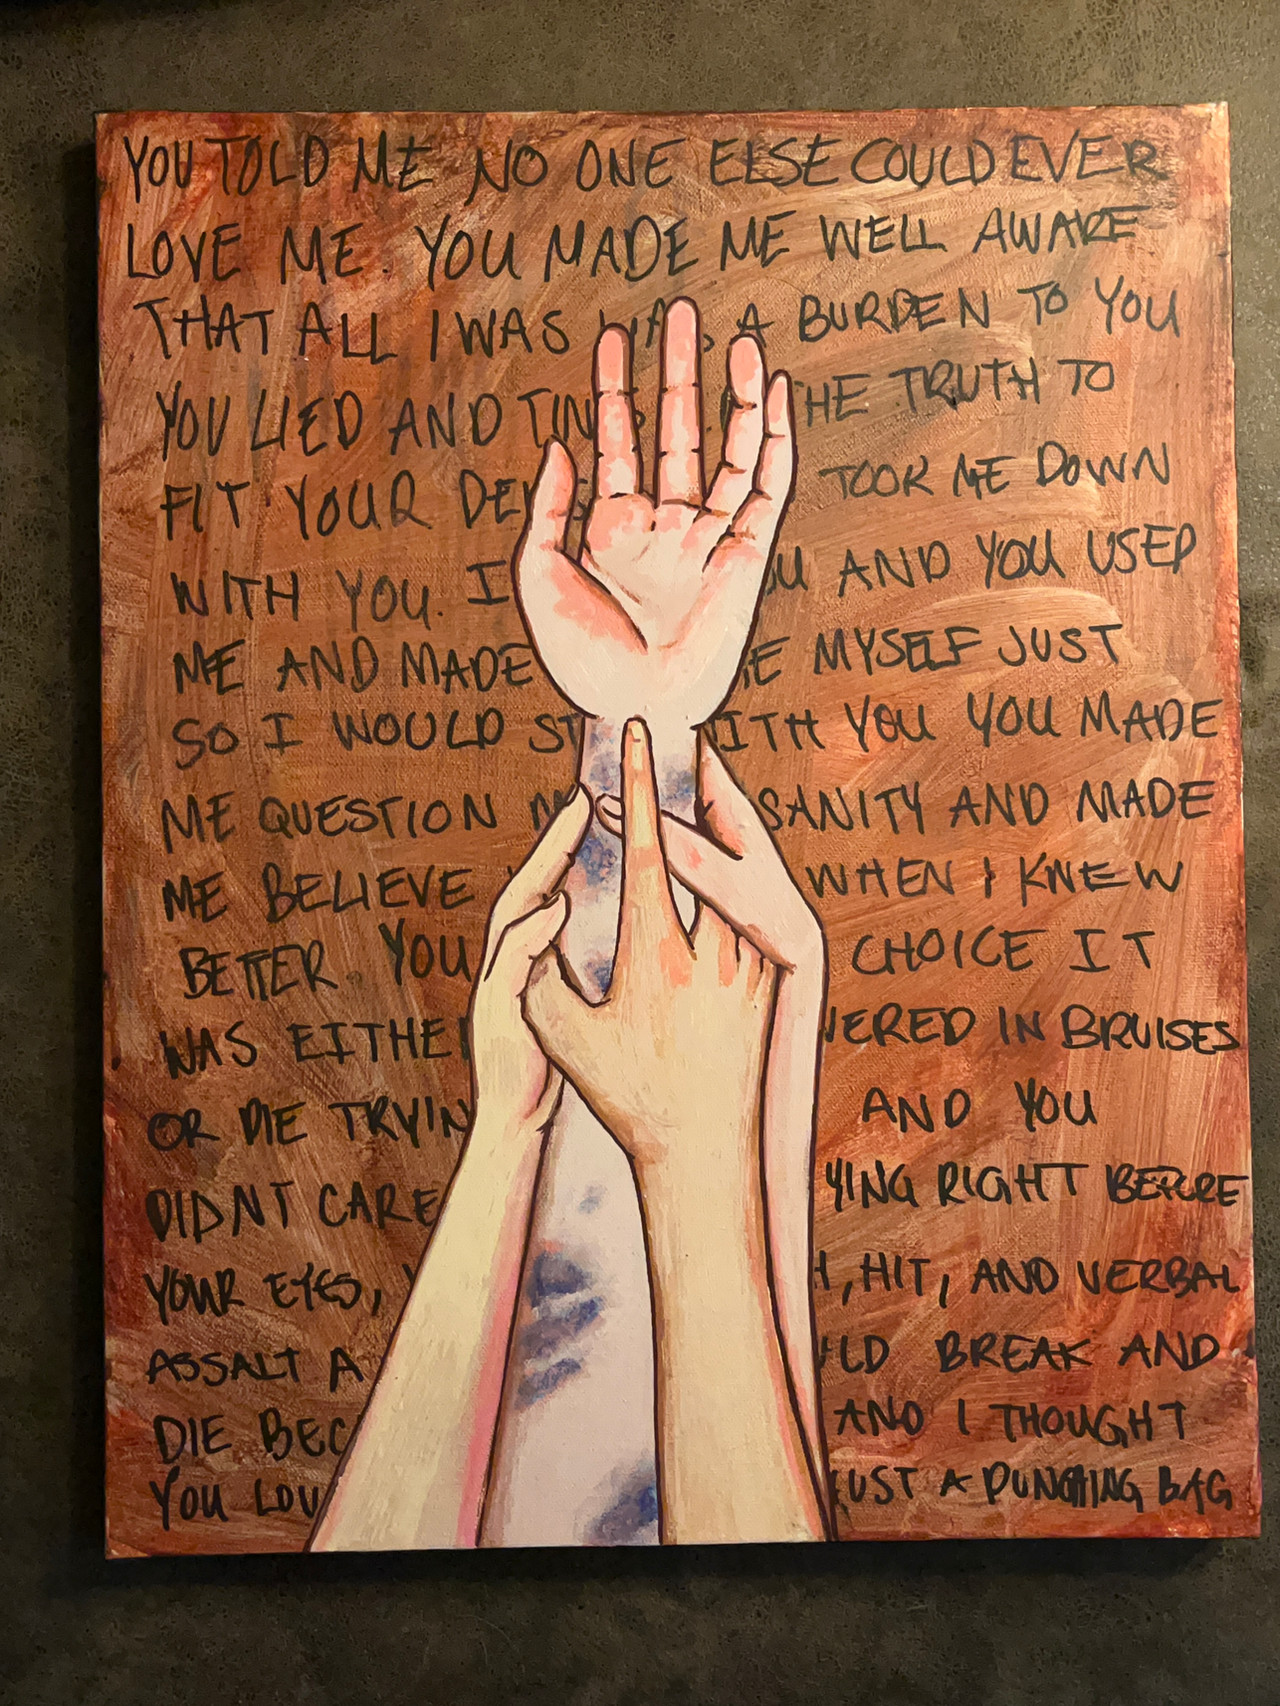 YOU TOLD ME NO ONE ELSE COULD EVER
LOVE ME. YOU MADE ME WELL AWARE
THAT ALL I WAS WAS A BURDEN TO YOU
YOU LIED AND THE TRUTH TO
FIT YOUR TOOK ME DOWN
WITH YOU. I AND YOU USED
ME AND MADE MYSELF JUST
SO I WOULD WITH YOU YOU MADE
ME QUESTION SANITY AND MADE
ME BELIEVE WHEN I KNEW
BETTER. YOU CHOICE IT
WAS EITHER IN BRUISES
OR DIE AND YOU
DIDNT CARE RIGHT BEFORE
YOUR EYES, HIT, AND VERBAL
ASSALT A BREAK AND
DIE AND I THOUGHT
YOU A PUNCHING BAG